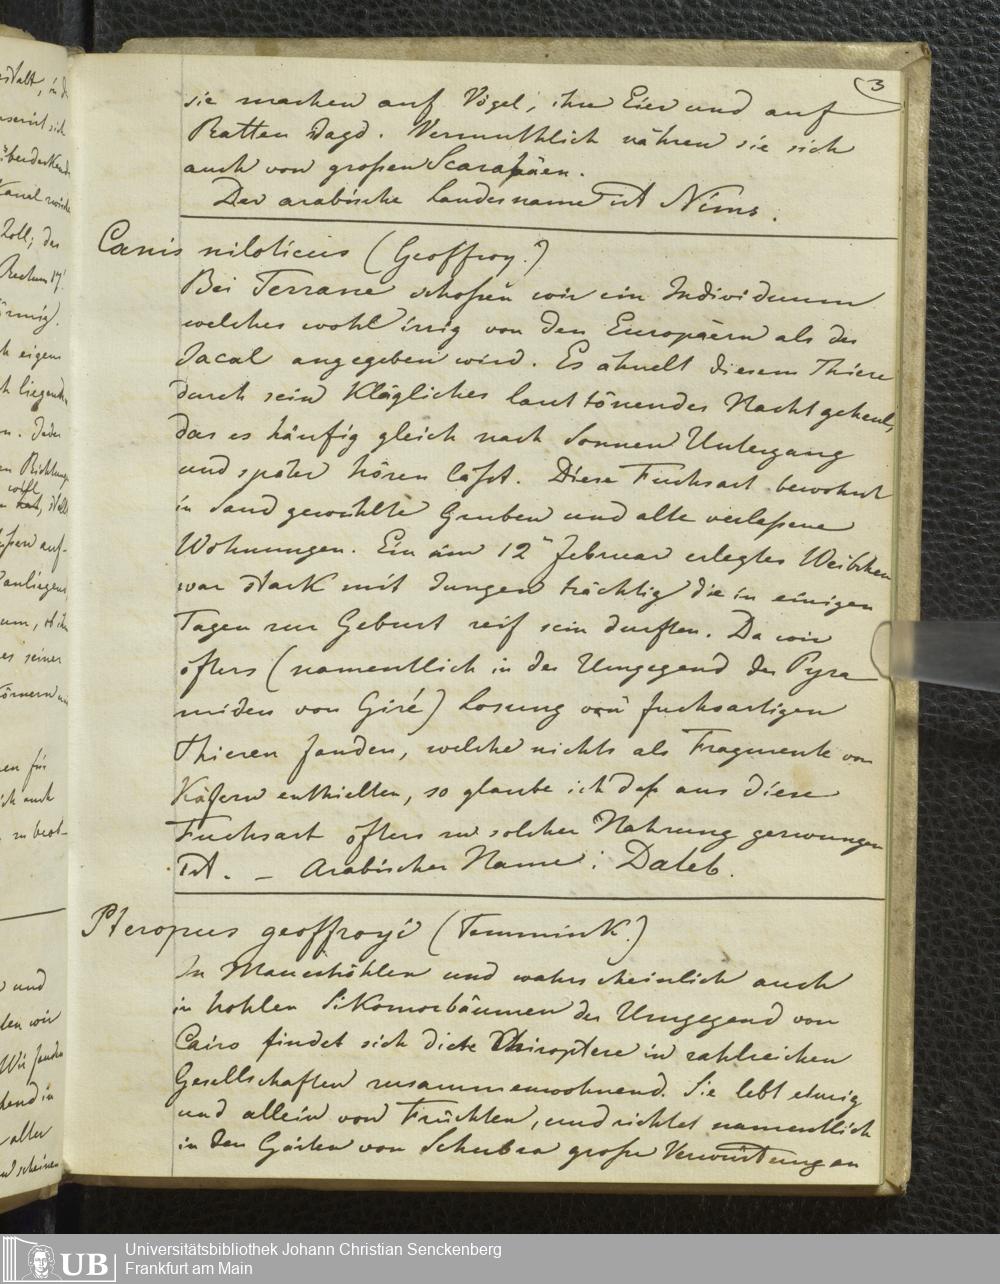 3
sie machen auf Vögel, ihre Eier und auf
Ratten Jagd. Vermuthlich nähren sie sich
auch von großen Scarabäen.
Der arabische Landesname ist Nims.
Canis niloticus (Geoffroy.)
Bei Terrane schoßen wir ein Individuum
welches wohl irrig von den Europäern als der
Jacal angegeben wird. Es ähnelt diesem Thiere
durch sein klägliches lauttönendes Nachtgeheul,
das es häufig gleich nach Sonnen Untergang
und später hören läßt. Diese Fuchsart bewohnt
in Sand gewühlte Gruben und alte verlaßene
Wohnungen. Ein am 12n Februar erlegtes Weibchen
war stark mit Jungen trächtig die in einigen
Tagen zur Geburt reif sein durften. Da wir
öfters (namentlich in der Umgegend der Pyra
miden von Gizé) Losung von fuchsartigen
Thieren fanden, welche nichts als Fragmente von
Käfern enthielten, so glaube ich daß aus diese
Fuchsart öfters zu solcher Nahrung gezwungen
ist. – Arabischer Name: Daleb.
Pteropus geoffroyi (Temmink.)
In Mauerhöhlen und wahrscheinlich auch
in hohlen Sikomorbäumen der Umgegend von
Cairo findet sich diese Chiroptere in zahlreichen
Gesellschaften zusammenwohnend. Sie lebt einzig
und allein von Früchten, und richtet namentlich
in den Gärten von Schubra große Verwüstungen an
UB
Universitätsbibliothek Johann Christian Senckenberg
Frankfurt am Main